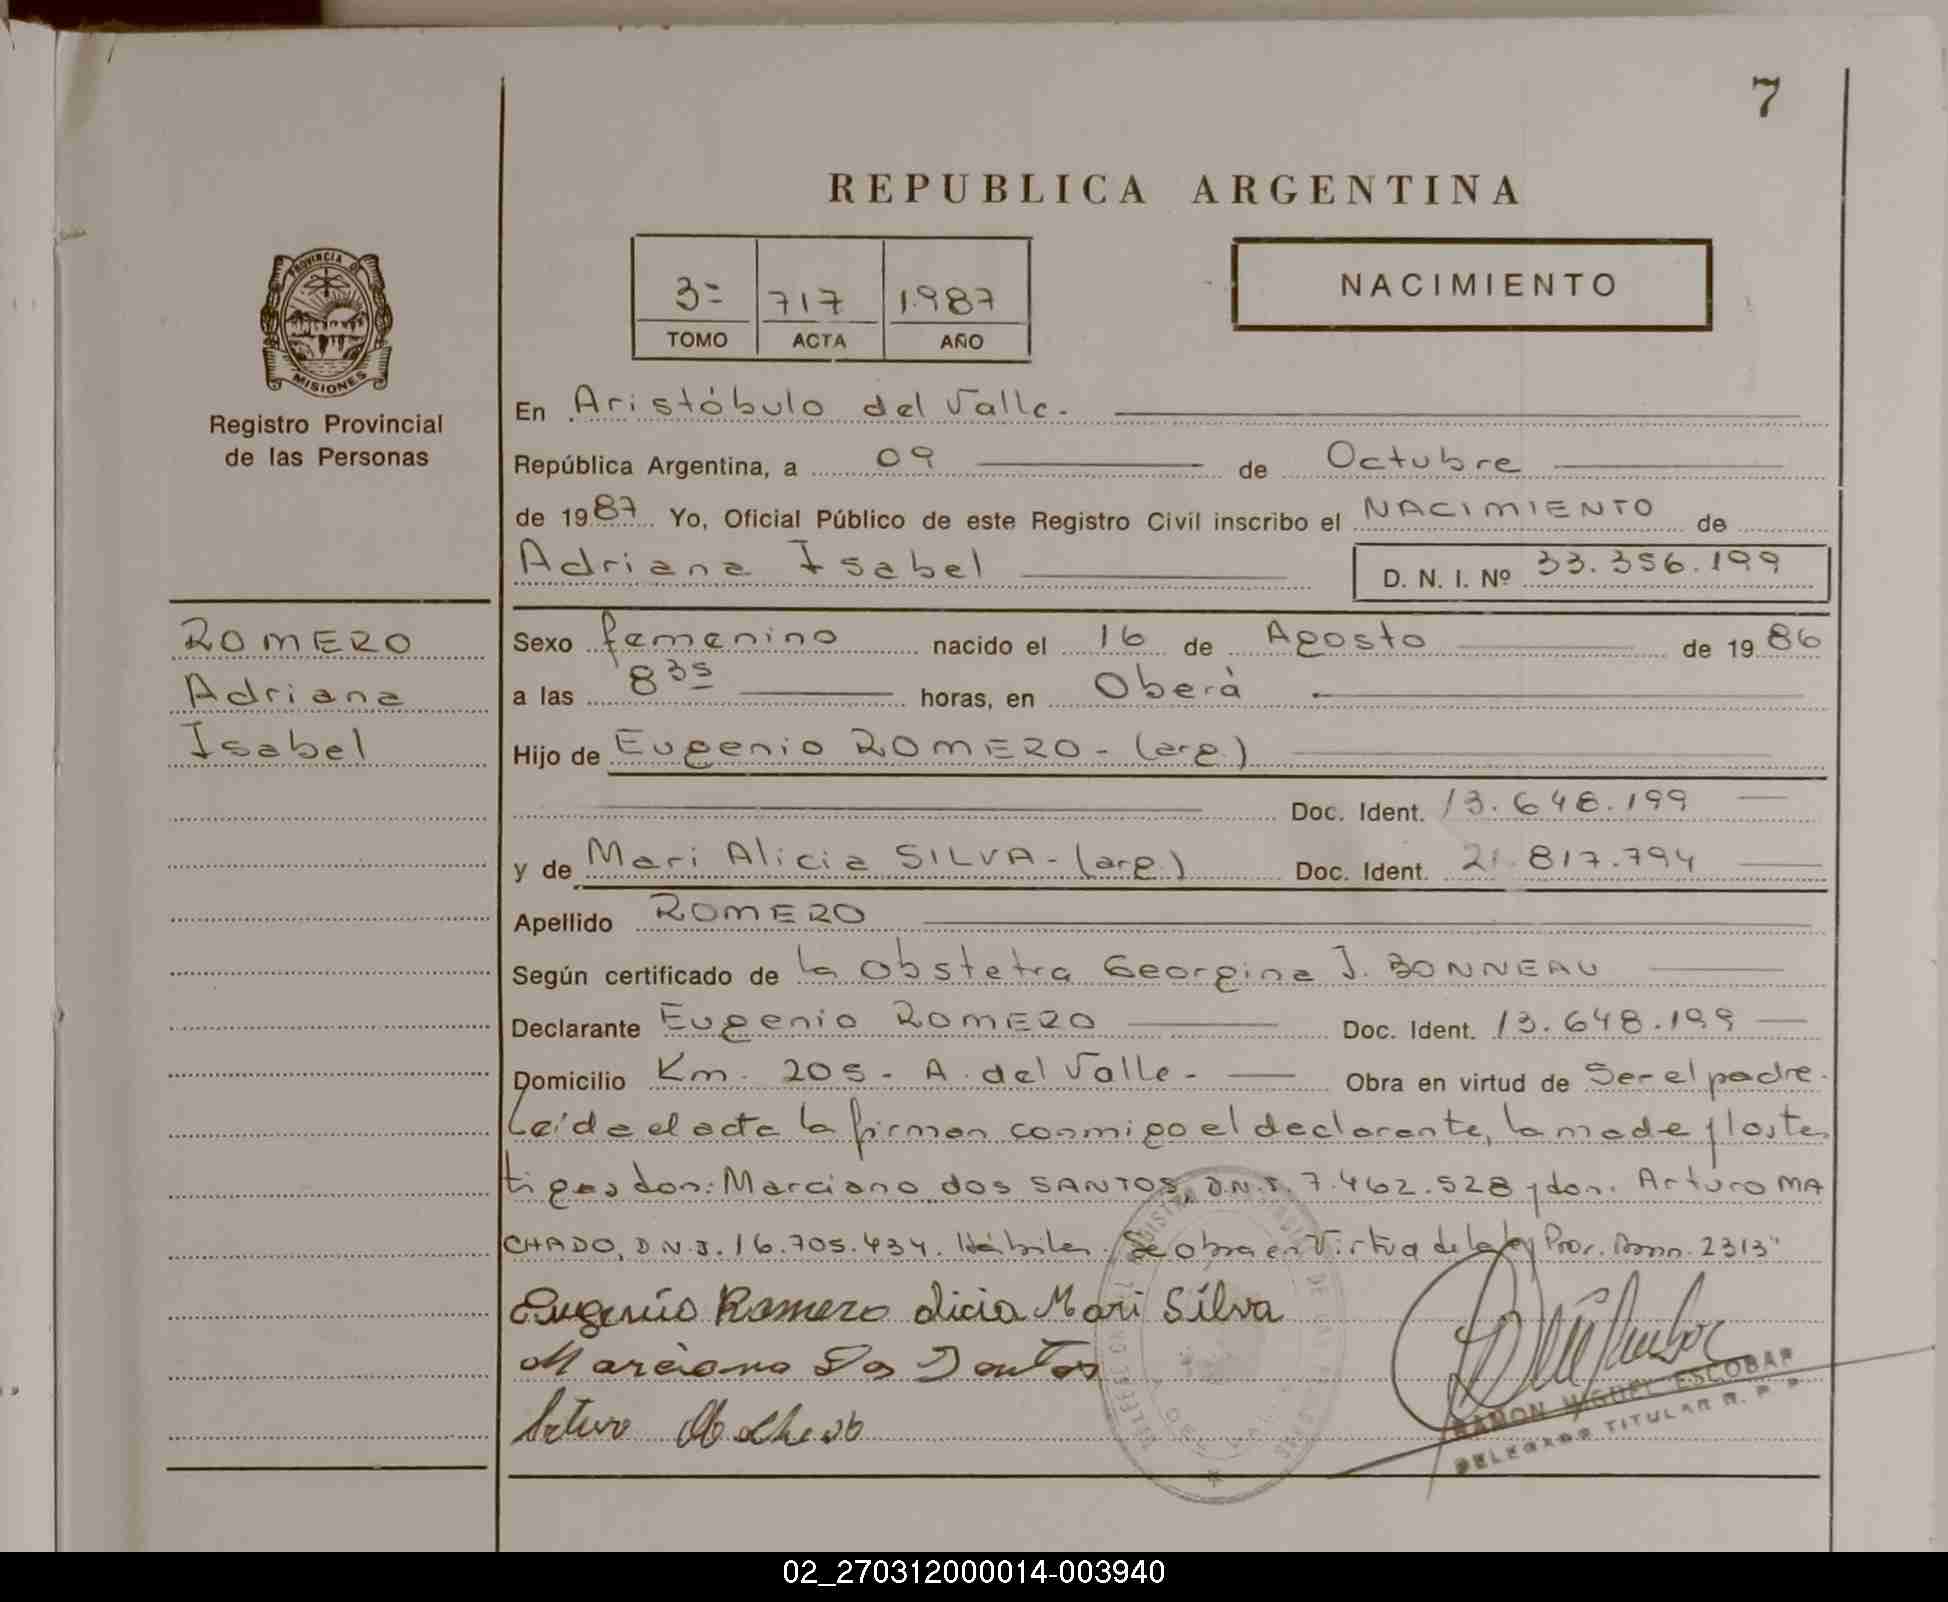 7
REPUBLICA ARGENTINA
PROVINCIA DE
MISIONES
Registro Provincial
de las Personas
3= 717 1.987
TOMO ACTA AÑO
NACIMIENTO
En Aristóbulo del Valle.
República Argentina, a 09 de Octubre
de 1987 Yo, Oficial Público de este Registro Civil inscribo el NACIMIENTO de
Adriana Isabel D. N. I. Nº 33.356.199
ROMERO
Adriana
Isabel
Sexo femenino nacido el 16 de Agosto de 1986
a las 8 35 horas, en Oberá
Hijo de Eugenio ROMERO - (arg.)
Doc. Ident. 13.648.199
y de Mari Alicia SILVA - (arg.) Doc. Ident. 21.817.794
Apellido ROMERO
Según certificado de la obstetra Georgina J. BONNEAU
Declarante Eugenio ROMERO Doc. Ident. 13.648.199
Domicilio Km. 205 - A. del Valle - Obra en virtud de Ser el padre.
Leída el acta la firman conmigo el declarante, la made y los tes
tigos don: Marciano dos SANTOS, D.N.I. 7.462.528 y don. Arturo MA
CHADO, D.N.I. 16.705.434. Hábiles. Se obra en Virtud de la ley Prov. 2313"
Eugenio Romero Alicia Mari Silva
Marciano Dos Santos
Arturo Machado
RAMON MIGUEL ESCOBAR
DELEGADO TITULAR R. P. P.
02_270312000014-003940